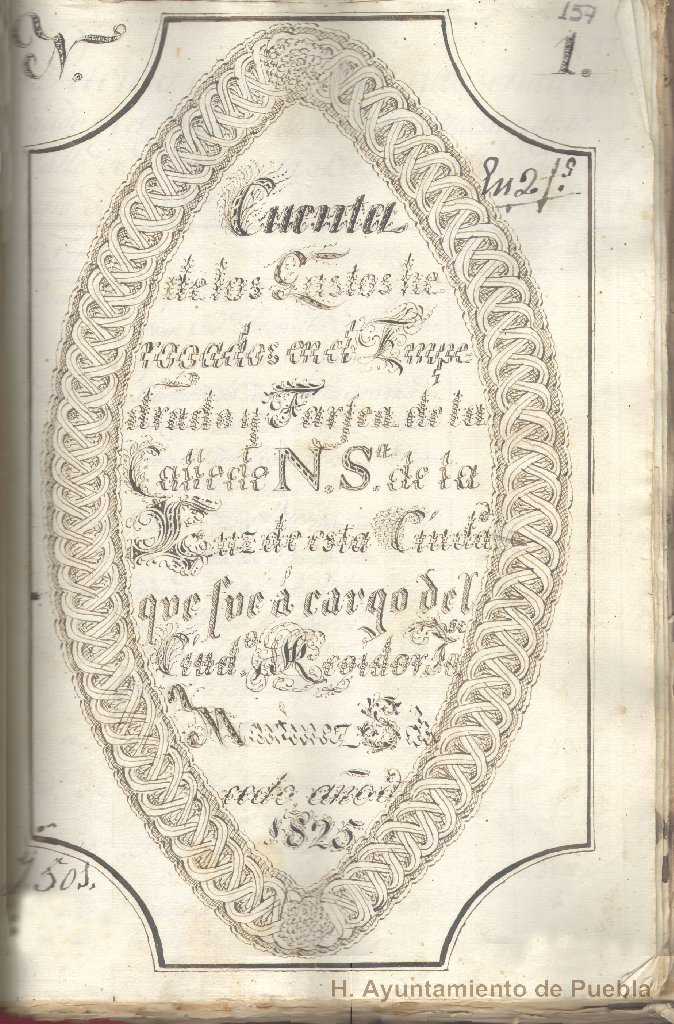 157
N. 1.
En 2 f.s
Cuenta
de los Gastos he
rogados en el Empe
drado y Tarjea de la
Calle de N. S.a de la
Luz de esta Ciudd
que fue á cargo del
Ciud.o Regidor
Martinez
cedo, año d
1825
501.
H. Ayuntamiento de Puebla